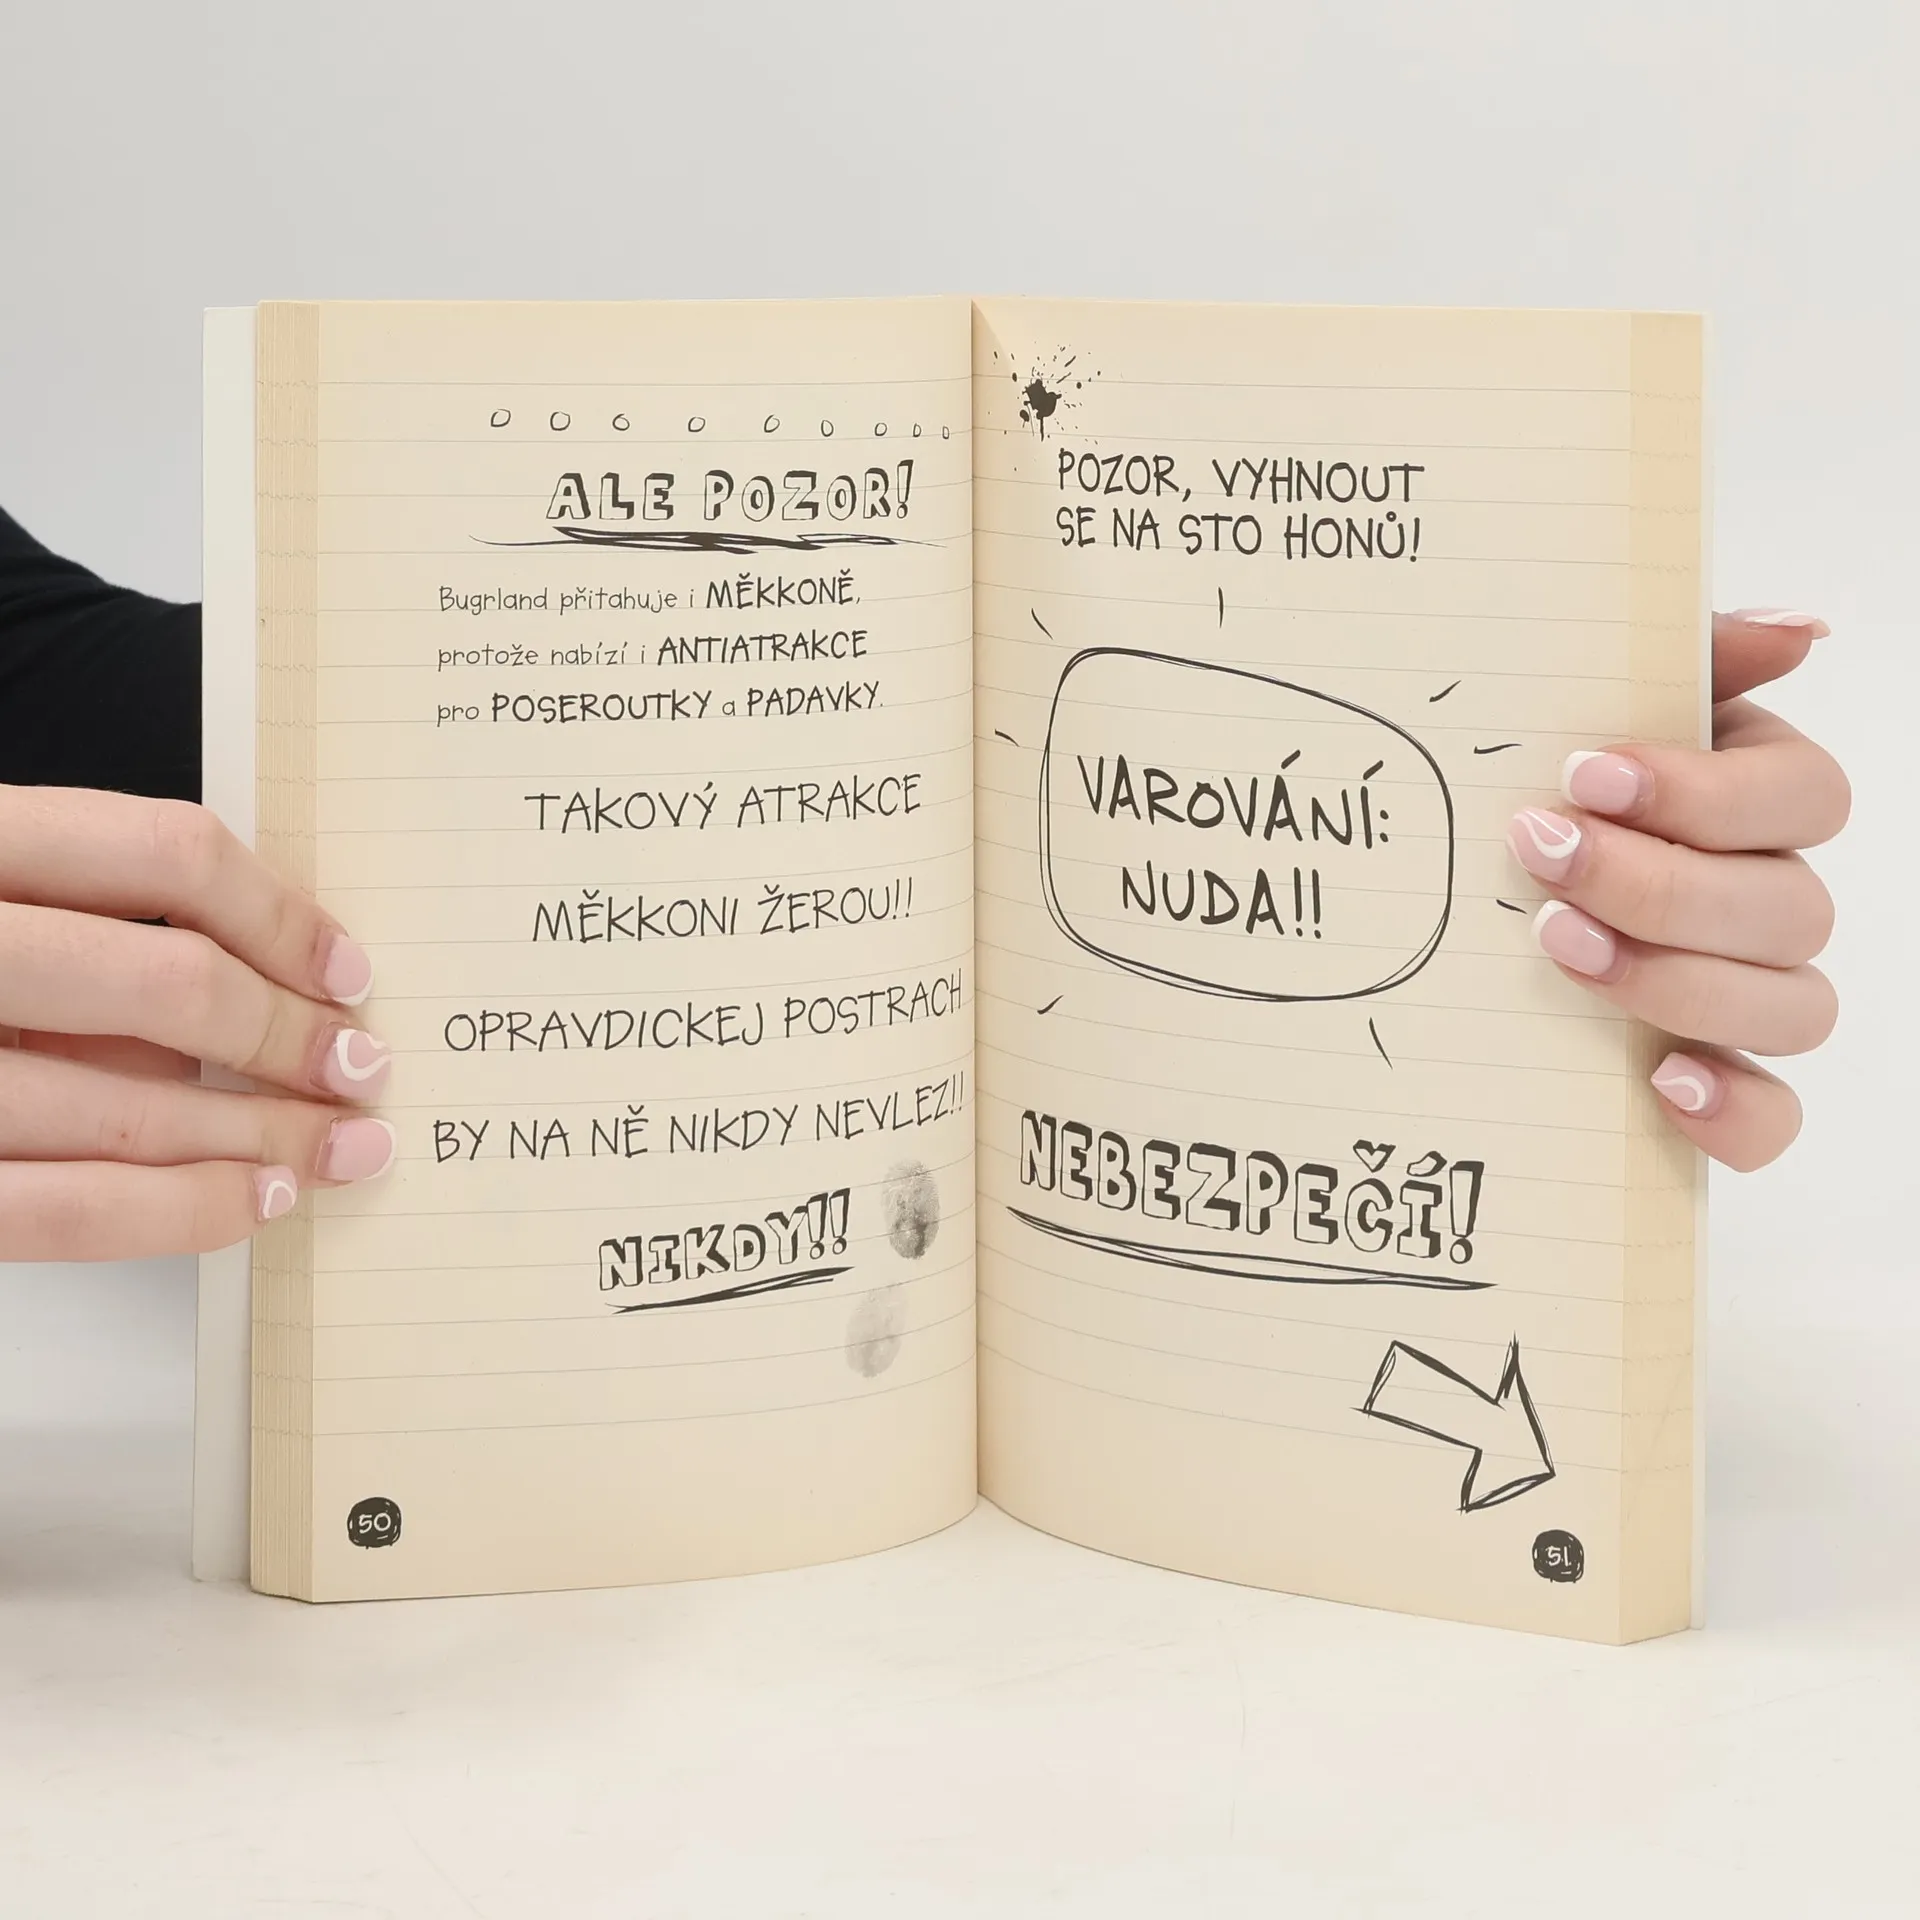 ALE POZOR!
Bugrland přitahuje i MĚKKONĚ,
protože nabízí i ANTIATRAKCE
pro POSEROUTKY a PADAVKY.
TAKOVÝ ATRAKCE
MĚKKONI ŽEROU!!
OPRAVDICKEJ POSTRACH
BY NA NĚ NIKDY NEVLEZ!!
NIKDY!!
50
POZOR, VYHNOUT
SE NA STO HONŮ!
VAROVÁNÍ:
NUDA!!
NEBEZPEČÍ!
51